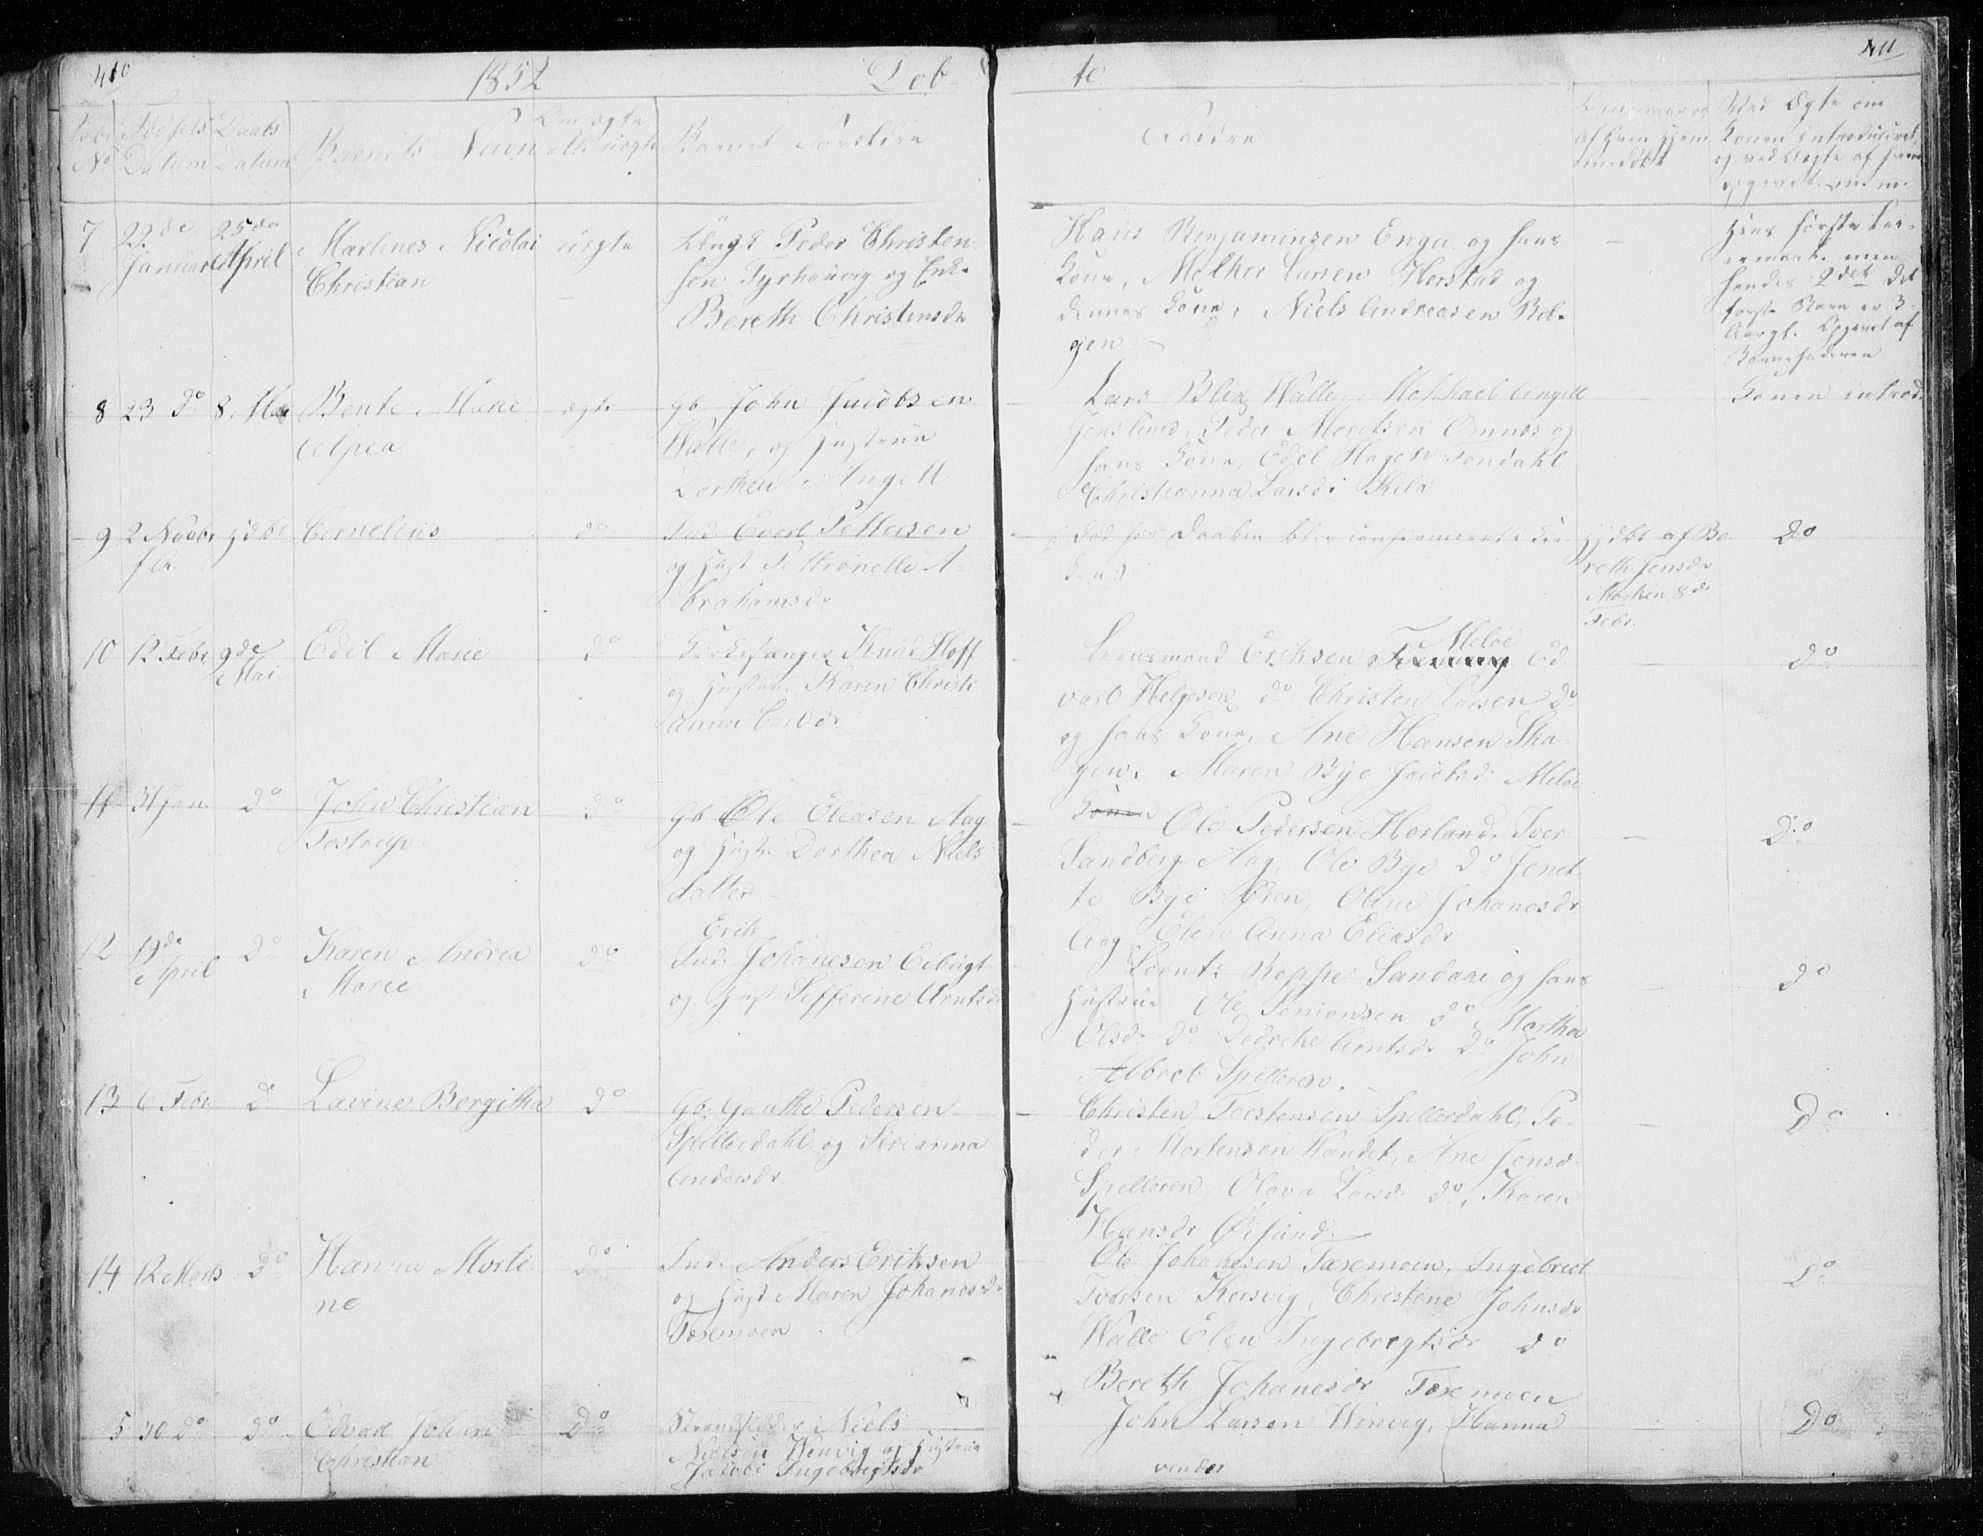 410
1852
Døb
te
411
No
Fødsels
Datum
Daabs
Datum
Barnets Navn
Om ægte
eller uægte
Barnets Forældre
Faddre
af hvem hjem
medøbt
Ved Ægte om
Konen introduceret,
og ved Uægte af hvem
7
22de
Januar
25de
April
Martines Nicolai
Christian
uægte
Ungk Peder Christen
sen Tyrhaavig og Enke
Bereth Christensdr
Hans Benjaminsen Enga og hans
Kone, Melker Larsen Herstad og
dennes Kone, Niels Andreasen Bol-
gen
Hans første Lei-
ermaal men
hendes 2det det
første Barn er 3
Aar gl. Opgivet af
Barnefaderen
8
23 do
8. Mai
Bente Marie
Alpea
ægte
Gb. John Jacobsen
Walle, og Hustrue
Dorthea Angell
Lars Blix Walle, Michael Angell
Jenslund, Peder Moretsen Omnæs og
hans Kone, Edel Hagen Tendahl
Christianna Larsdr Kila
Konen introd.
9
2 Novbr
Cornelius
do
Ind. Evert Pettersen
og Hust Pettronelle A-
brahamsdr
død før Daaben blev confirmeret i Kir-
ken
hjdbt af Be
reth Jensdr
8de
Febr.
Do
10
12 Febr
9de
Mai
Edel Marie
do
Kirkesanger Knud Hoff
og Hustrue Karen Christi
anna Carlsdr
Meløe
Lensmand Eriksen Ed
vart Helgesen do Christen Larsen do
og hans Kone, Ane Hansen Ska-
gen, Maren Bye Jacobsdr Meløe
do
11
31 Jan
do
John Christian
Tostrup
do
Gb Ole Eliasen Aag
og Hustr. Dorthea Niels
datter
Konen Ole Pedersen Horland, Iver
Sandberg Aag, Ole Bye do Jonet-
te Bye Øren, Oline Johanesdr
Aag Elen Anna Eliasdr
Do
12
19de
April
do
Karen Andrea
Marie
do
Erik
Ind. Johanesen Eibugt
og Hust Sefferine Arntsdr
Lornts Reppe Sandaae og hans
Hustrue Ole Simonsen do Martha
Olsdr do Dedreke Arntsdr do John
Albret Spilleren.
do
13
6 Febr
do
Lavine Bergitha
do
Gb. Gunthe Pedersen
Spillerdahl og Serianna
Andersdr
Christen Torstensen Spillerdahl, Pe-
der Mortensen Vandet, Ane Jonsdr
Spilleren Olava Larsdr do, Karen
Hansdr Øisund
Do
14
12 Marts
do
Hanna Marti
ne
do
Ind. Anders Eriksen
og Hust Maren Johanesdr
Toremoen
Ole Johanesen Toremoen, Ingebrect
Iversen Korsvig, Christine Johnsdr
Walle Elen Ingebregtsdr do
Bereth Johanesdr Toremoen
Do
5
30 do
do
Edvart Johan
Christian
Do
Strandsidder Niels
Nielsen Wenvig og Hustrue
Jacobi Ingebregtsdr
John Larsen Wenvig, Hanna
vendes
Do